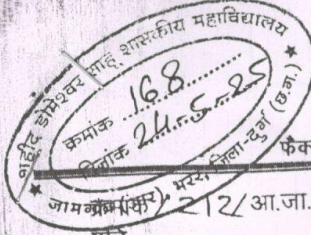 शहीद डोमेश्वर साहू शासकीय महाविद्यालय
क्रमांक 168
दिनांक 24.5.25
जिला-दुर्ग (छ.ग.)
फैक
212/ आ.जा.